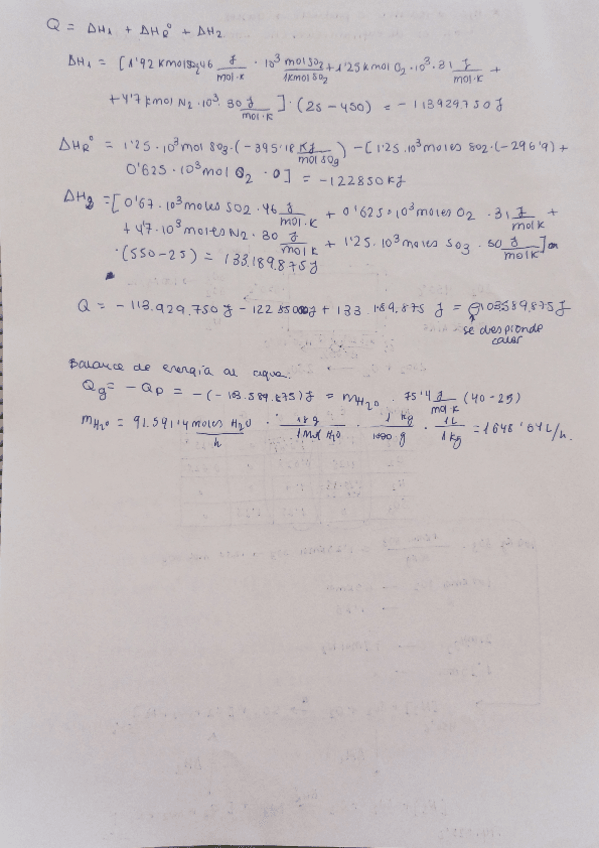 Q = ΔH1 + ΔHR° + ΔH2
ΔH1 = [1'92 Kmol SO2 46 J/mol·K · 10³ mol SO2/1Kmol SO2 + 1'25 Kmol O2 · 10³ · 31 J/mol·K +
+ 4'7 Kmol N2 · 10³ · 30 J/mol·K] · (25 - 450) = - 113929750 J
ΔHR° = 1'25 · 10³ mol SO3 · (-395'18 KJ/mol SO3) - [1'25 · 10³ moles SO2 · (-296'9) +
0'625 · 10³ mol O2 · 0] = -122850 KJ
ΔH2 = [0'67 · 10³ moles SO2 · 46 J/mol·K + 0'625 · 10³ moles O2 · 31 J/mol K +
+ 4'7 · 10³ moles N2 · 30 J/mol K + 1'25 · 10³ moles SO3 · 50 J/mol K]
· (550 - 25) = 133.189.875 J
Q = - 113.929.750 J - 122 850000 J + 133.189.875 J = - 103589.875 J
se desprende
calor
Balance de energía al agua:
Qg = - Qp = - (- 103.589.875) J = mH2O · 75'4 J/mol·K (40 - 25)
mH2O = 91.591'4 moles H2O/h · 18 g/1 mol H2O · 1 kg/1000 g · 1L/1kg = 1648'64 L/h.